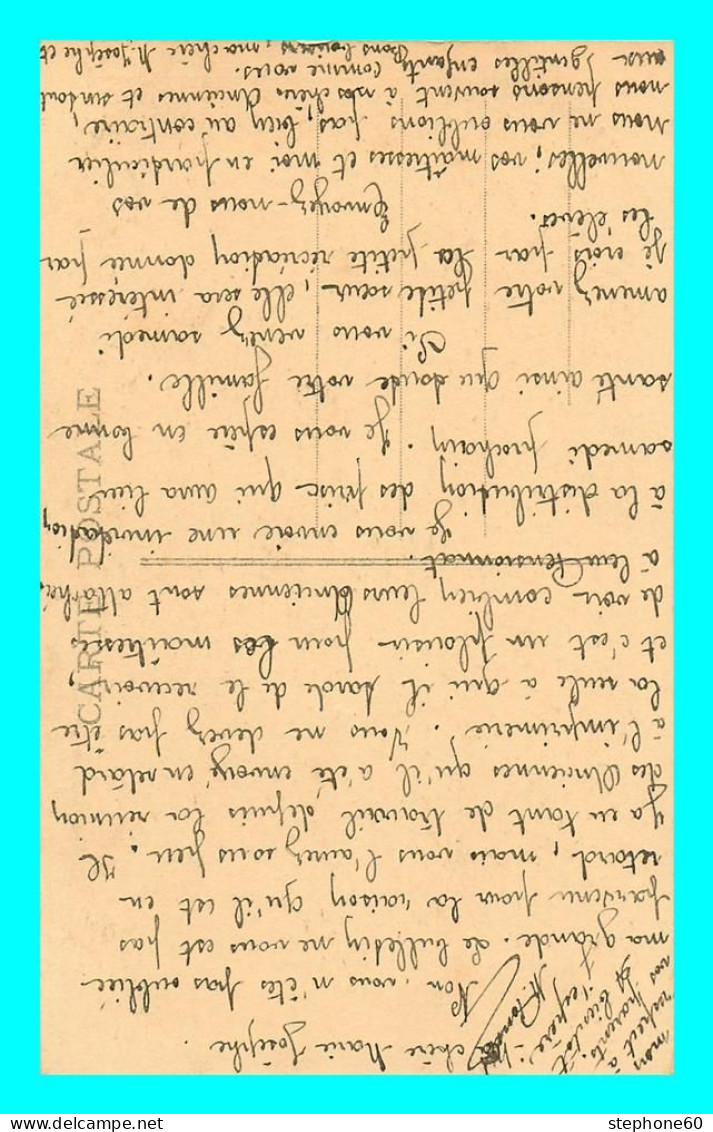 Ma chère Marie Josèphe.
Non, vous n'êtes pas oubliée
ma grande. Le bulletin ne vous est pas
parvenu pour la raison qu'il est en
retard, mais vous l'aurez sous peu. Il
y a eu tant de travail depuis la réunion
des Anciennes qu'il a été envoyé en retard
à l'imprimerie. Vous ne devez pas être
la seule à qui il tarde de le recevoir,
et c'est un plaisir pour les maîtresses
de voir combien leurs Anciennes sont attachées
à leur Pensionnat.
Je vous envoie une invitation
à la distribution des prix qui aura lieu
samedi prochain. Je vous espère en bonne
santé ainsi que toute votre famille.
Si vous venez samedi
amenez votre petite sœur, elle sera intéressée
je crois par la petite récréation donnée par
les élèves.
Envoyez-nous de vos
nouvelles; vos maîtresses et moi en particulier
nous ne vous oublions pas, bien au contraire,
nous pensons souvent à nos chères Anciennes et surtout
aux gentilles enfants comme vous.
Bons baisers, ma chère M. Josèphe et
mon
respect à
vos parents.
A bientôt
j'espère.
CARTE POSTALE
stephone60